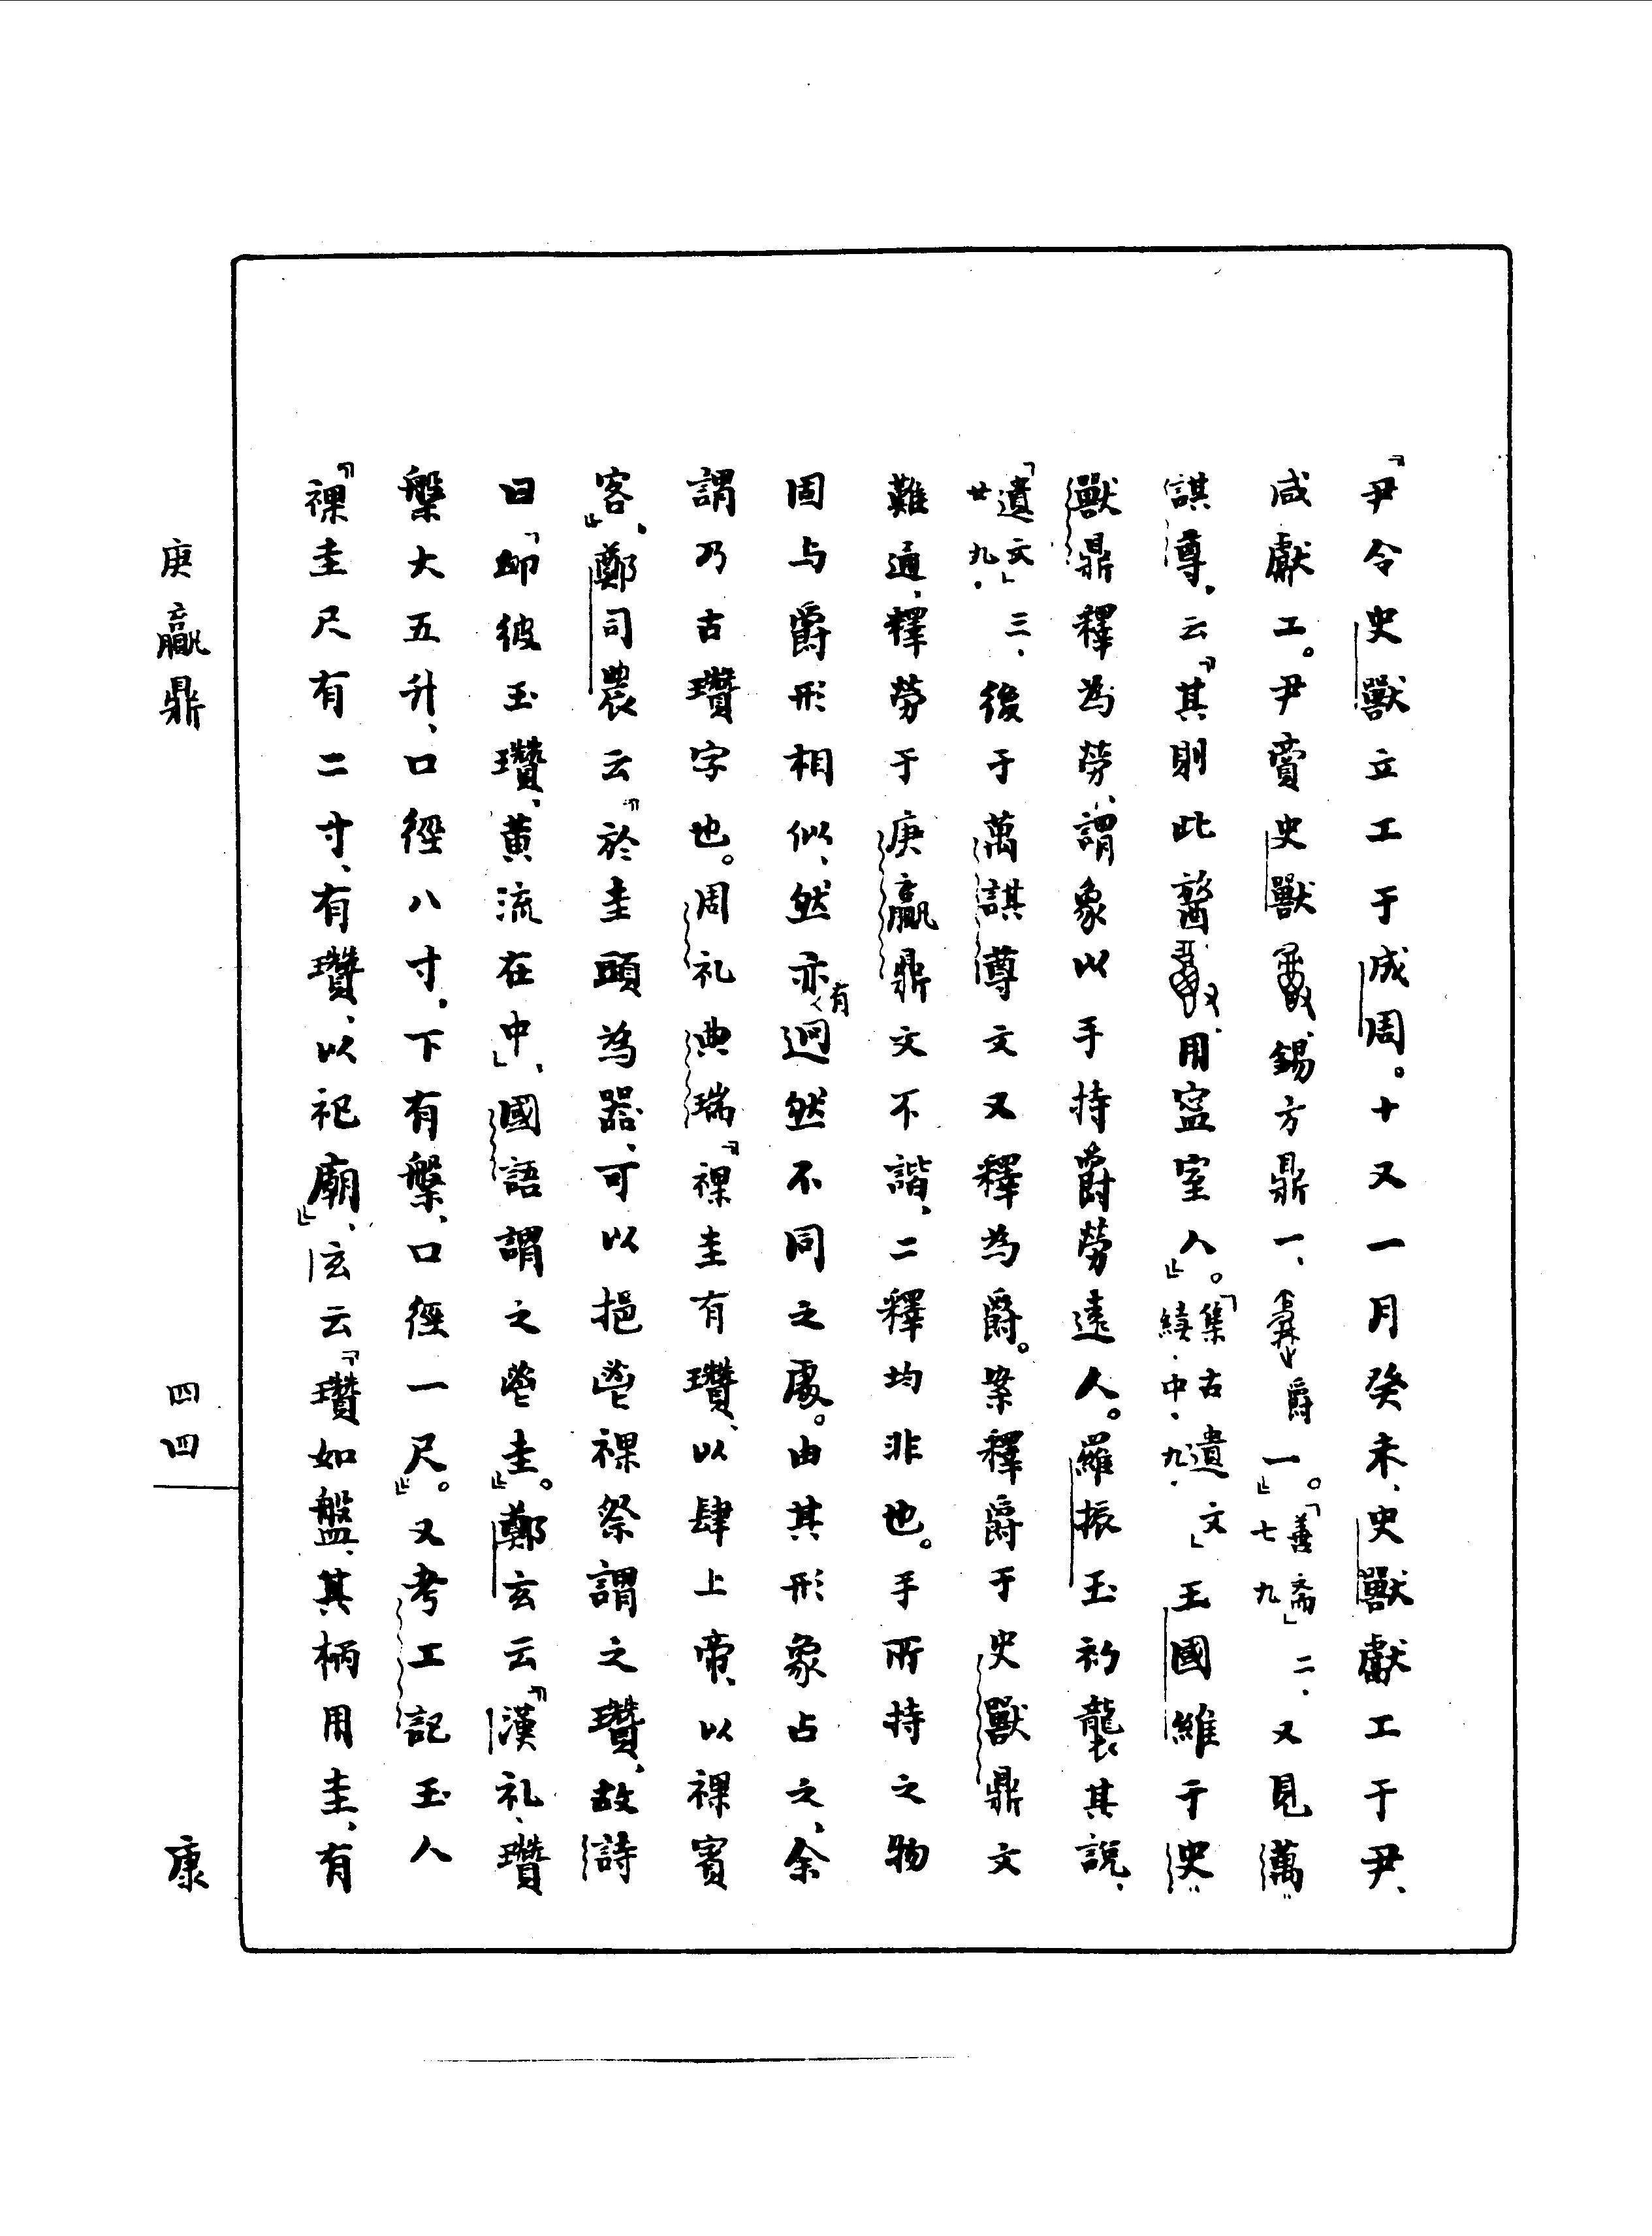 『尹令史獸立工于成周。十又一月癸未、史獸獻工于尹、
咸獻工。尹賞史獸、錫方鼎一、爵一』。「善斋」七九二、又見萬
諆尊。云『其則此用寍室人』。「集古遺文」續·中·九·王國維于史
獸鼎釋為勞、謂象以手持爵勞遠人。羅振玉初襲其說、
「遺文」三、廿九·後于萬諆尊文又釋為爵。案釋爵于史獸鼎文
難通、釋勞于庚嬴鼎文不諧、二釋均非也。手所持之物
固与爵形相似、然亦有迥然不同之處。由其形象占之、余
謂乃古瓚字也。周礼典瑞『祼圭有瓚、以肆上帝、以祼賓
客』、鄭司農云『於圭頭為器、可以挹鬯祼祭謂之瓚、故詩
曰「卹彼玉瓚、黃流在中」、國語謂之鬯圭』。鄭玄云『漢礼、瓚
槃大五升、口徑八寸。下有槃、口徑一尺』。又考工記玉人
『祼圭尺有二寸、有瓚、以祀廟』、玄云『瓚如盤、其柄用圭、有
庚嬴鼎 四四 康